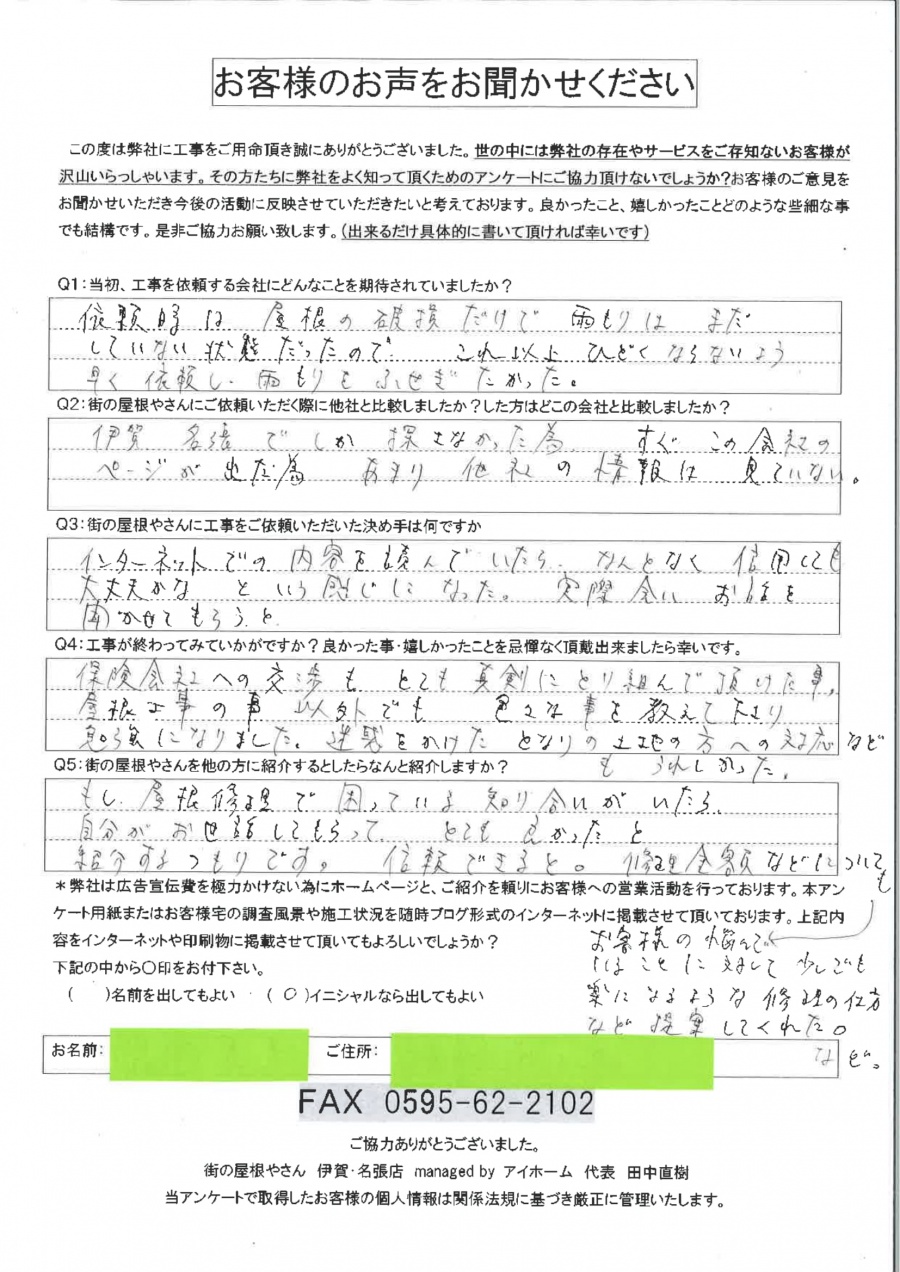 お客様のお声をお聞かせください
この度は弊社に工事をご用命頂き誠にありがとうございました。世の中には弊社の存在やサービスをご存知ないお客様が
沢山いらっしゃいます。その方たちに弊社をよく知って頂くためのアンケートにご協力頂けないでしょうか?お客様のご意見を
お聞かせいただき今後の活動に反映させていただきたいと考えております。良かったこと、嬉しかったことどのような些細な事
でも結構です。是非ご協力お願い致します。(出来るだけ具体的に書いて頂ければ幸いです)
Q1:当初、工事を依頼する会社にどんなことを期待されていましたか?
依頼時は 屋根の破損だけで 雨もりは まだ
していない状態だったので これ以上 ひどくならないよう
早く依頼し、雨もりをふせぎたかった。
Q2:街の屋根やさんにご依頼いただく際に他社と比較しましたか?した方はどこの会社と比較しましたか?
伊賀 名張でしか探さなかった為 すぐ この会社の
ページが出た為 あまり 他社の情報は 見ていない。
Q3:街の屋根やさんに工事をご依頼いただいた決め手は何ですか
インターネットでの内容を読んでいたら、なんとなく 信用しても
大丈夫かな という感じになった。 実際会い お話を
聞かせてもらうと
Q4:工事が終わってみていかがですか?良かった事・嬉しかったことを忌憚なく頂戴出来ましたら幸いです。
保険会社への交渉も とても真剣にとり組んで頂けた事。
屋根工事の事 以外でも 色々な事を教えて下さり
勉強になりました。迷惑をかけた となりの土地の方への対応など
も うれしかった。
Q5:街の屋根やさんを他の方に紹介するとしたらなんと紹介しますか?
もし、屋根修理で困っている知り合いがいたら、
自分がお世話してもらって とても良かったと
紹介するつもりです。 信頼できると。 修理金額などについても
お客様の悩んで
いることに対して少しでも
楽になるような修理の仕方
など提案してくれた。
など。
*弊社は広告宣伝費を極力かけない為にホームページと、ご紹介を頼りにお客様への営業活動を行っております。本アン
ケート用紙またはお客様宅の調査風景や施工状況を随時ブログ形式のインターネットに掲載させて頂いております。上記内
容をインターネットや印刷物に掲載させて頂いてもよろしいでしょうか?
下記の中から○印をお付下さい。
( )名前を出してもよい (○)イニシャルなら出してもよい
お名前: ご住所:
FAX 0595-62-2102
ご協力ありがとうございました。
街の屋根やさん 伊賀・名張店 managed by アイホーム 代表 田中直樹
当アンケートで取得したお客様の個人情報は関係法規に基づき厳正に管理いたします。